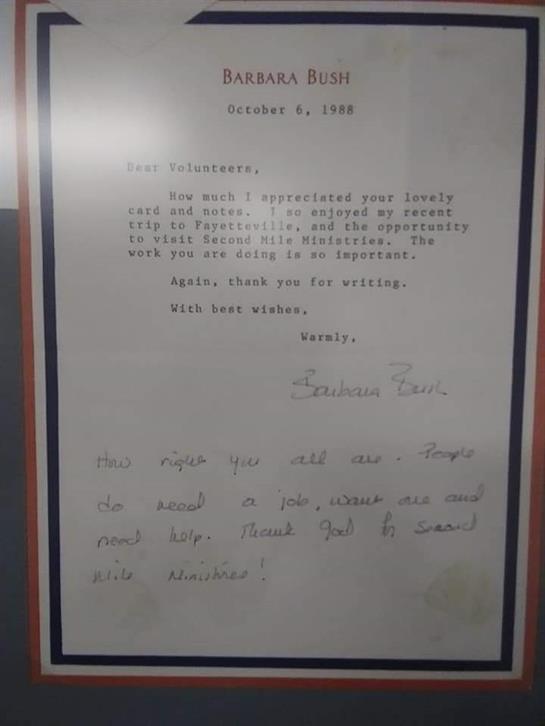 BARBARA BUSH
October 6, 1988
Dear Volunteers,
How much I appreciated your lovely
card and notes. I so enjoyed my recent
trip to Fayetteville, and the opportunity
to visit Second Mile Ministries. The
work you are doing is so important.
Again, thank you for writing.
With best wishes,
Warmly,
Barbara Bush
How right you all are. People
do need a job, want one and
need help. Thank God for Second
Mile Ministries!